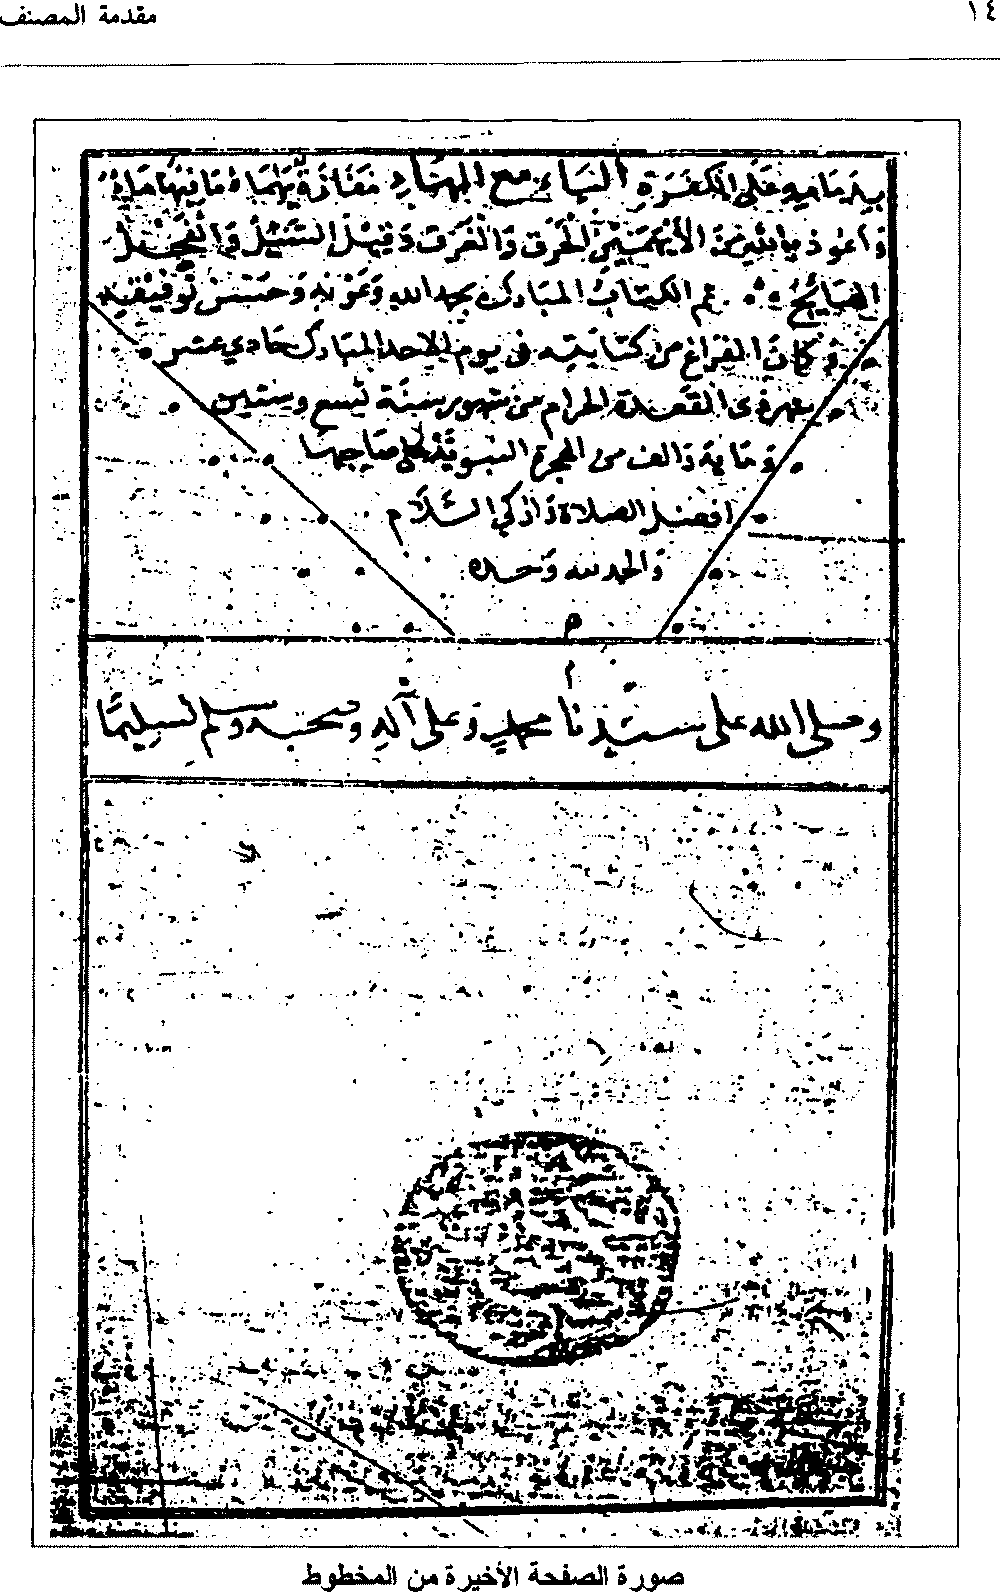 ١٤
مقدمة المصنف
على الكفرة النساء مع المهاد مفازة
واعوذ بالله من الأيهمين الحرق والغرق وقيل السيل والفحل
الهائج تم الكتاب المبارك بحمد الله وعونه وحسن توفيقه
وكان الفراغ من كتابته في يوم الاحد المبارك حادي عشر
شهر ذي القعدة الحرام من شهور سنة تسع وستين
وماية والف من الهجرة النبوية على صاحبها
افضل الصلاة وازكي السلام
والحمد لله وحده
م
م
وصلى الله على سيدنا محمد وعلى آله وصحبه وسلم تسليما
صورة الصفحة الأخيرة من المخطوط